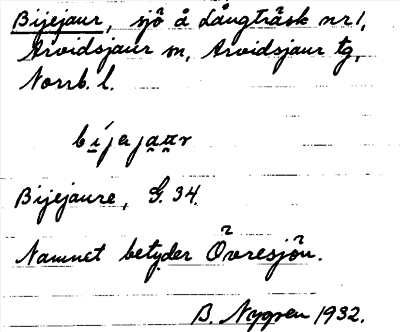 Bijejaur, sjö å Långträsk nr 1,
Arvidsjaur sn, Arvidsjaur tg,
Norrb. l.
bi̱jeja̱a̱r
Bijejaure, G. 34.
Namnet betyder Övresjön.
B. Nygren 1932.